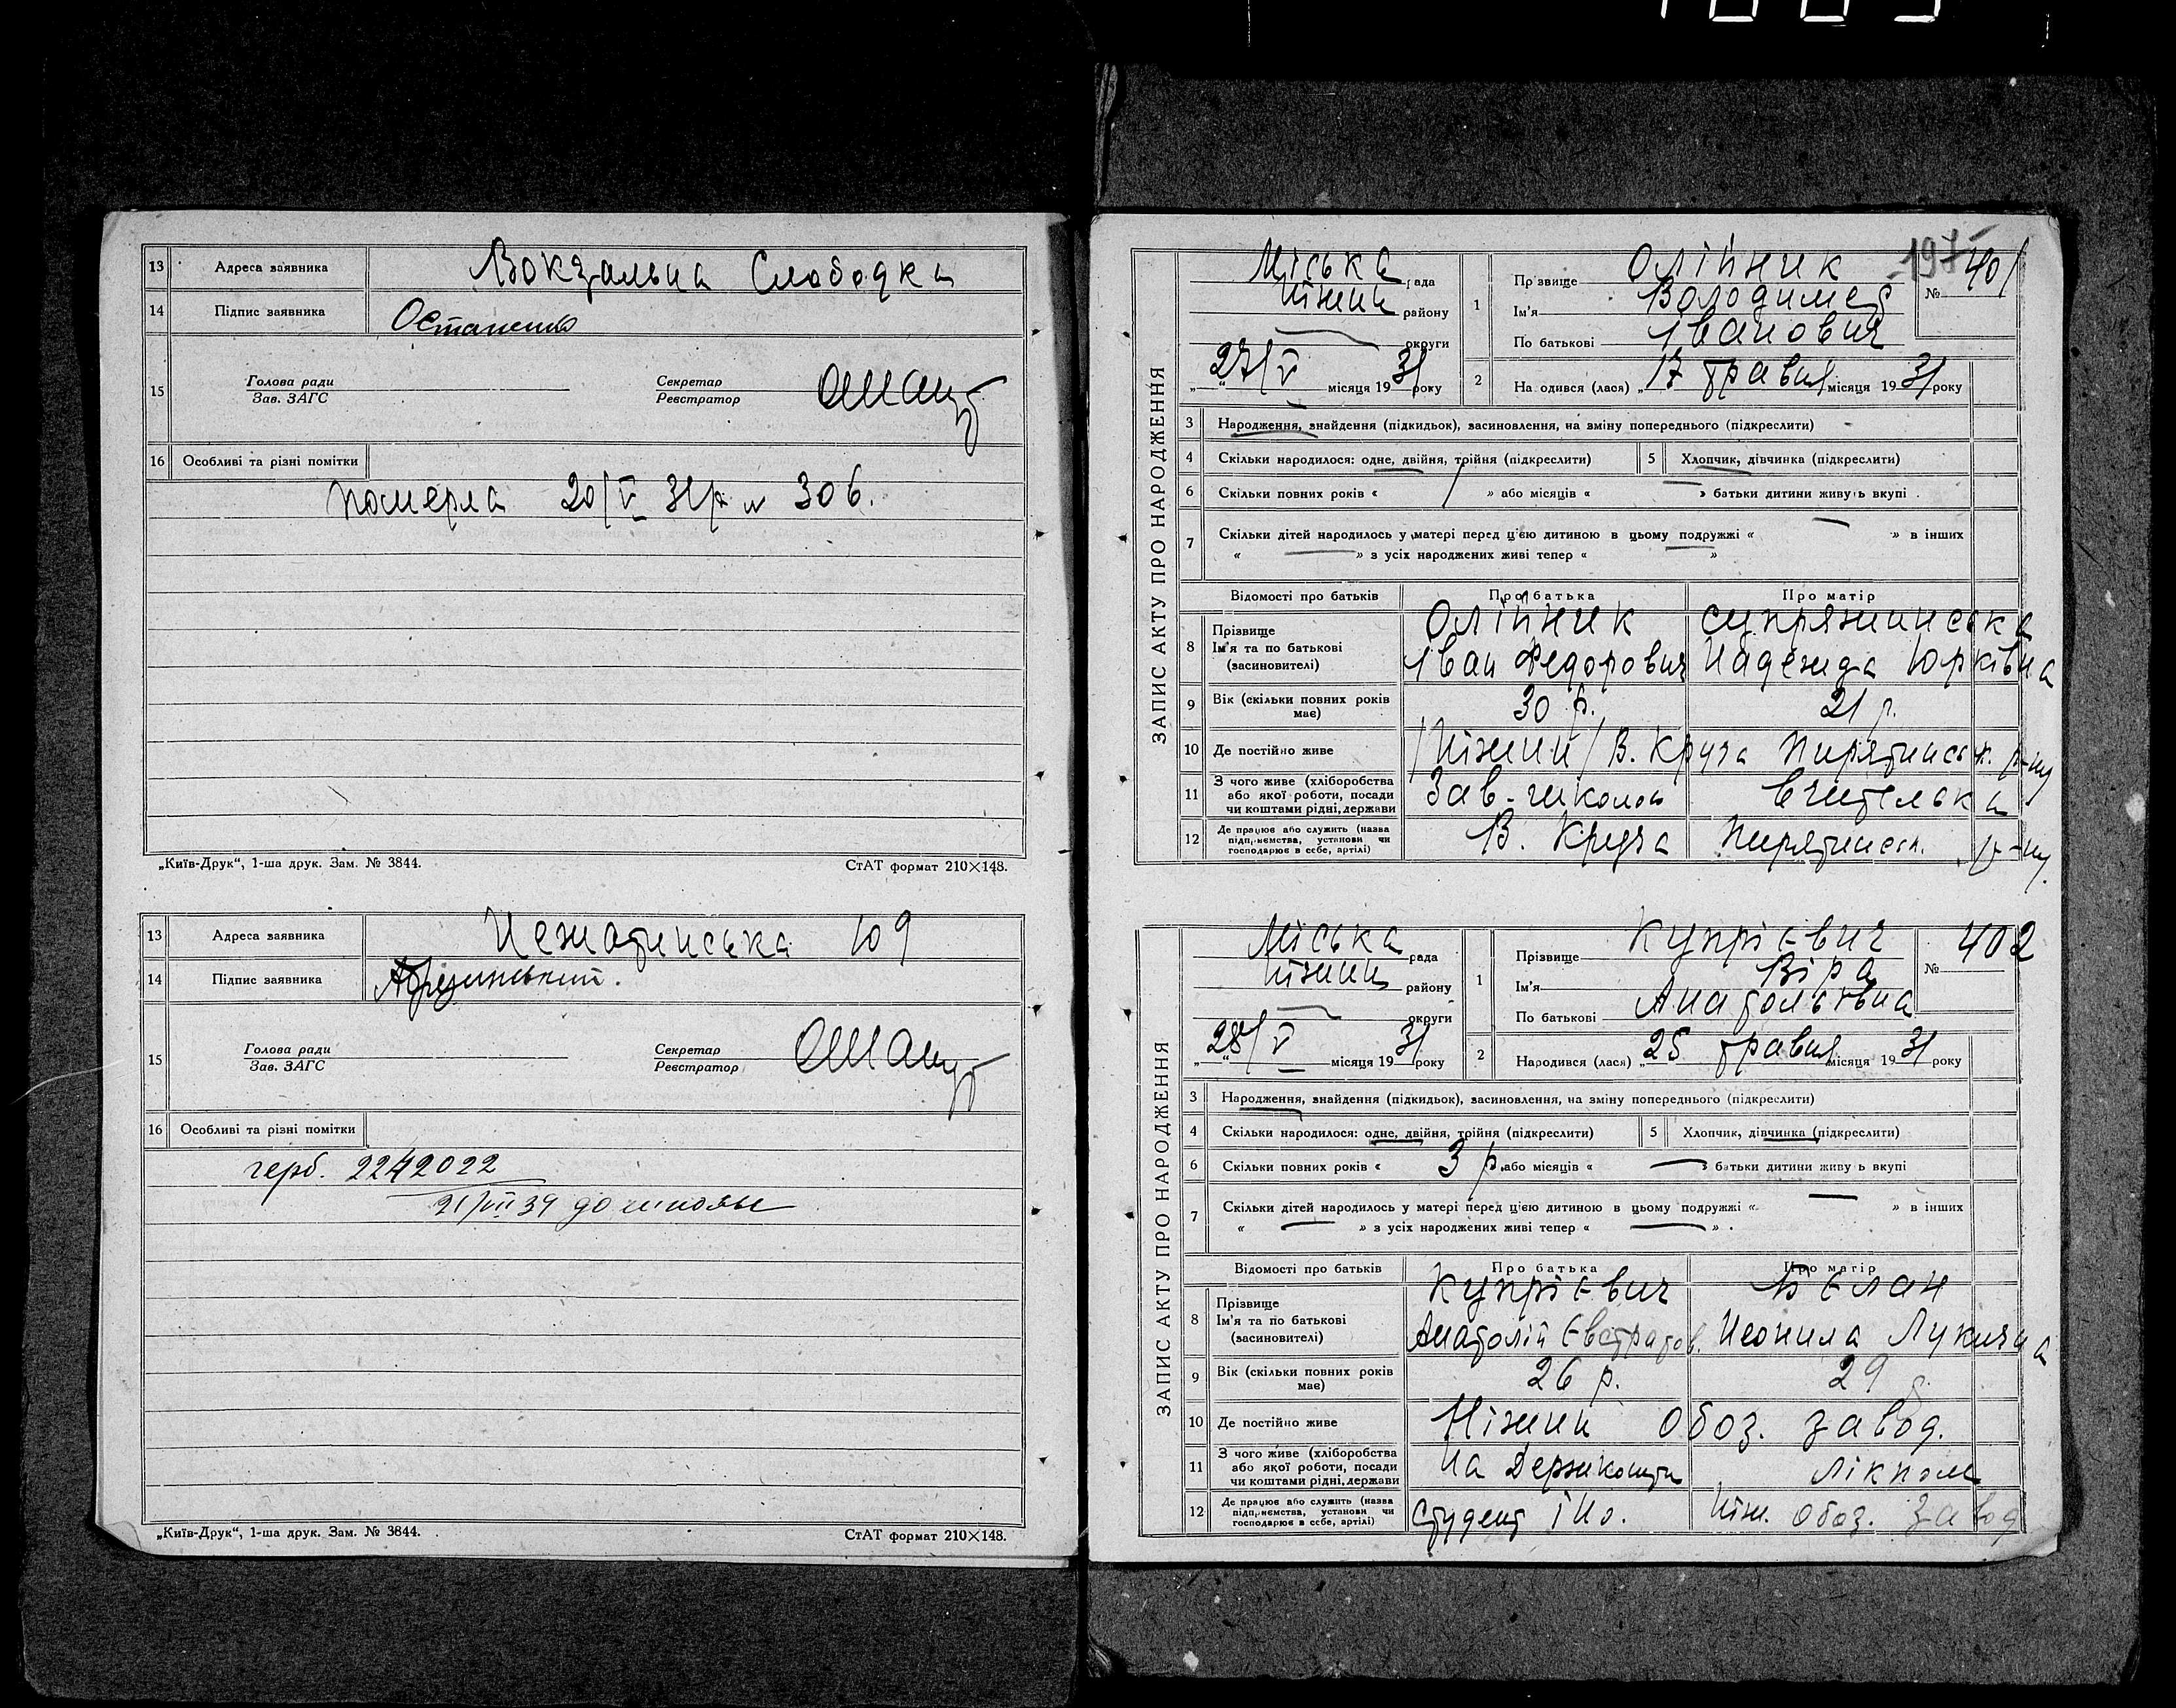 13 Адреса заявника Вокзальна Слободка
14 Підпис заявника Остапенко
15 Голова ради
Зав. ЗАГС
Секретар
Реєстратор
16 Особливі та різні помітки
померла 20/V 31 р № 306.
„Київ-Друк“, 1-ша друк. Зам. № 3844. СтАТ формат 210×148.
13 Адреса заявника 109
14 Підпис заявника
15 Голова ради
Зав. ЗАГС
Секретар
Реєстратор
16 Особливі та різні помітки
герб. 2242022
21/VII 39 до школы
„Київ-Друк“, 1-ша друк. Зам. № 3844. СтАТ формат 210×148.
ЗАПИС АКТУ ПРО НАРОДЖЕННЯ
197
Міська рада
Ніжин району
округи
„27/V“ місяця 1931 року
1 Прізвище Олійник
Ім'я Володимер
По батькові Іванович
№ 401
2 Народився (лася) „17 травня місяця 1931 року
3 Народження, знайдення (підкидьок), засиновлення, на зміну попереднього (підкреслити)
4 Скільки народилося: одне, двійня, трійня (підкреслити) 5 Хлопчик, дівчинка (підкреслити)
6 Скільки повних років « » або місяців « » батьки дитини живуть вкупі .
7 Скільки дітей народилось у матері перед цією дитиною в цьому подружжі « — » в інших
« — » з усіх народжених живі тепер « »
Відомості про батьків Про батька Про матір
8 Прізвище
Ім'я та по батькові
(засиновителі)
Олійник
Іван Федорович
Надежда Юрківна
9 Вік (скільки повних років має) 30 р. 21 р.
10 Де постійно живе /Ніжин/ В. Круча Пирятинськ. р-ну
11 З чого живе (хліборобства або якої роботи, посади чи коштами рідні, держави Зав. школою вчителька
12 Де працює або служить (назва підприємства, установи чи господарює в себе, артілі) В. Круча Пирятинськ. р-ну.
ЗАПИС АКТУ ПРО НАРОДЖЕННЯ
Міська рада
Ніжин району
округи
„28/V“ місяця 1931 року
1 Прізвище Купрієвич
Ім'я Віра
По батькові Анатольєвна
№ 402
2 Народився (лася) „25 травня місяця 1931 року
3 Народження, знайдення (підкидьок), засиновлення, на зміну попереднього (підкреслити)
4 Скільки народилося: одне, двійня, трійня (підкреслити) 5 Хлопчик, дівчинка (підкреслити)
6 Скільки повних років « 3 р. або місяців « — » батьки дитини живуть вкупі
7 Скільки дітей народилось у матері перед цією дитиною в цьому подружжі « — » в інших
« — » з усіх народжених живі тепер « — » .
Відомості про батьків Про батька Про матір
8 Прізвище
Ім'я та по батькові
(засиновителі)
Купрієвич Бєлан
Анатолій Євстратов. Неонила Лукична
9 Вік (скільки повних років має) 26 р. 29 р.
10 Де постійно живе Ніжин Обоз. завод.
11 З чого живе (хліборобства або якої роботи, посади чи коштами рідні, держави На Держкошти Лікпом
12 Де працює або служить (назва підприємства, установи чи господарює в себе, артілі) Студент ІНо. Ніж. обоз. завод